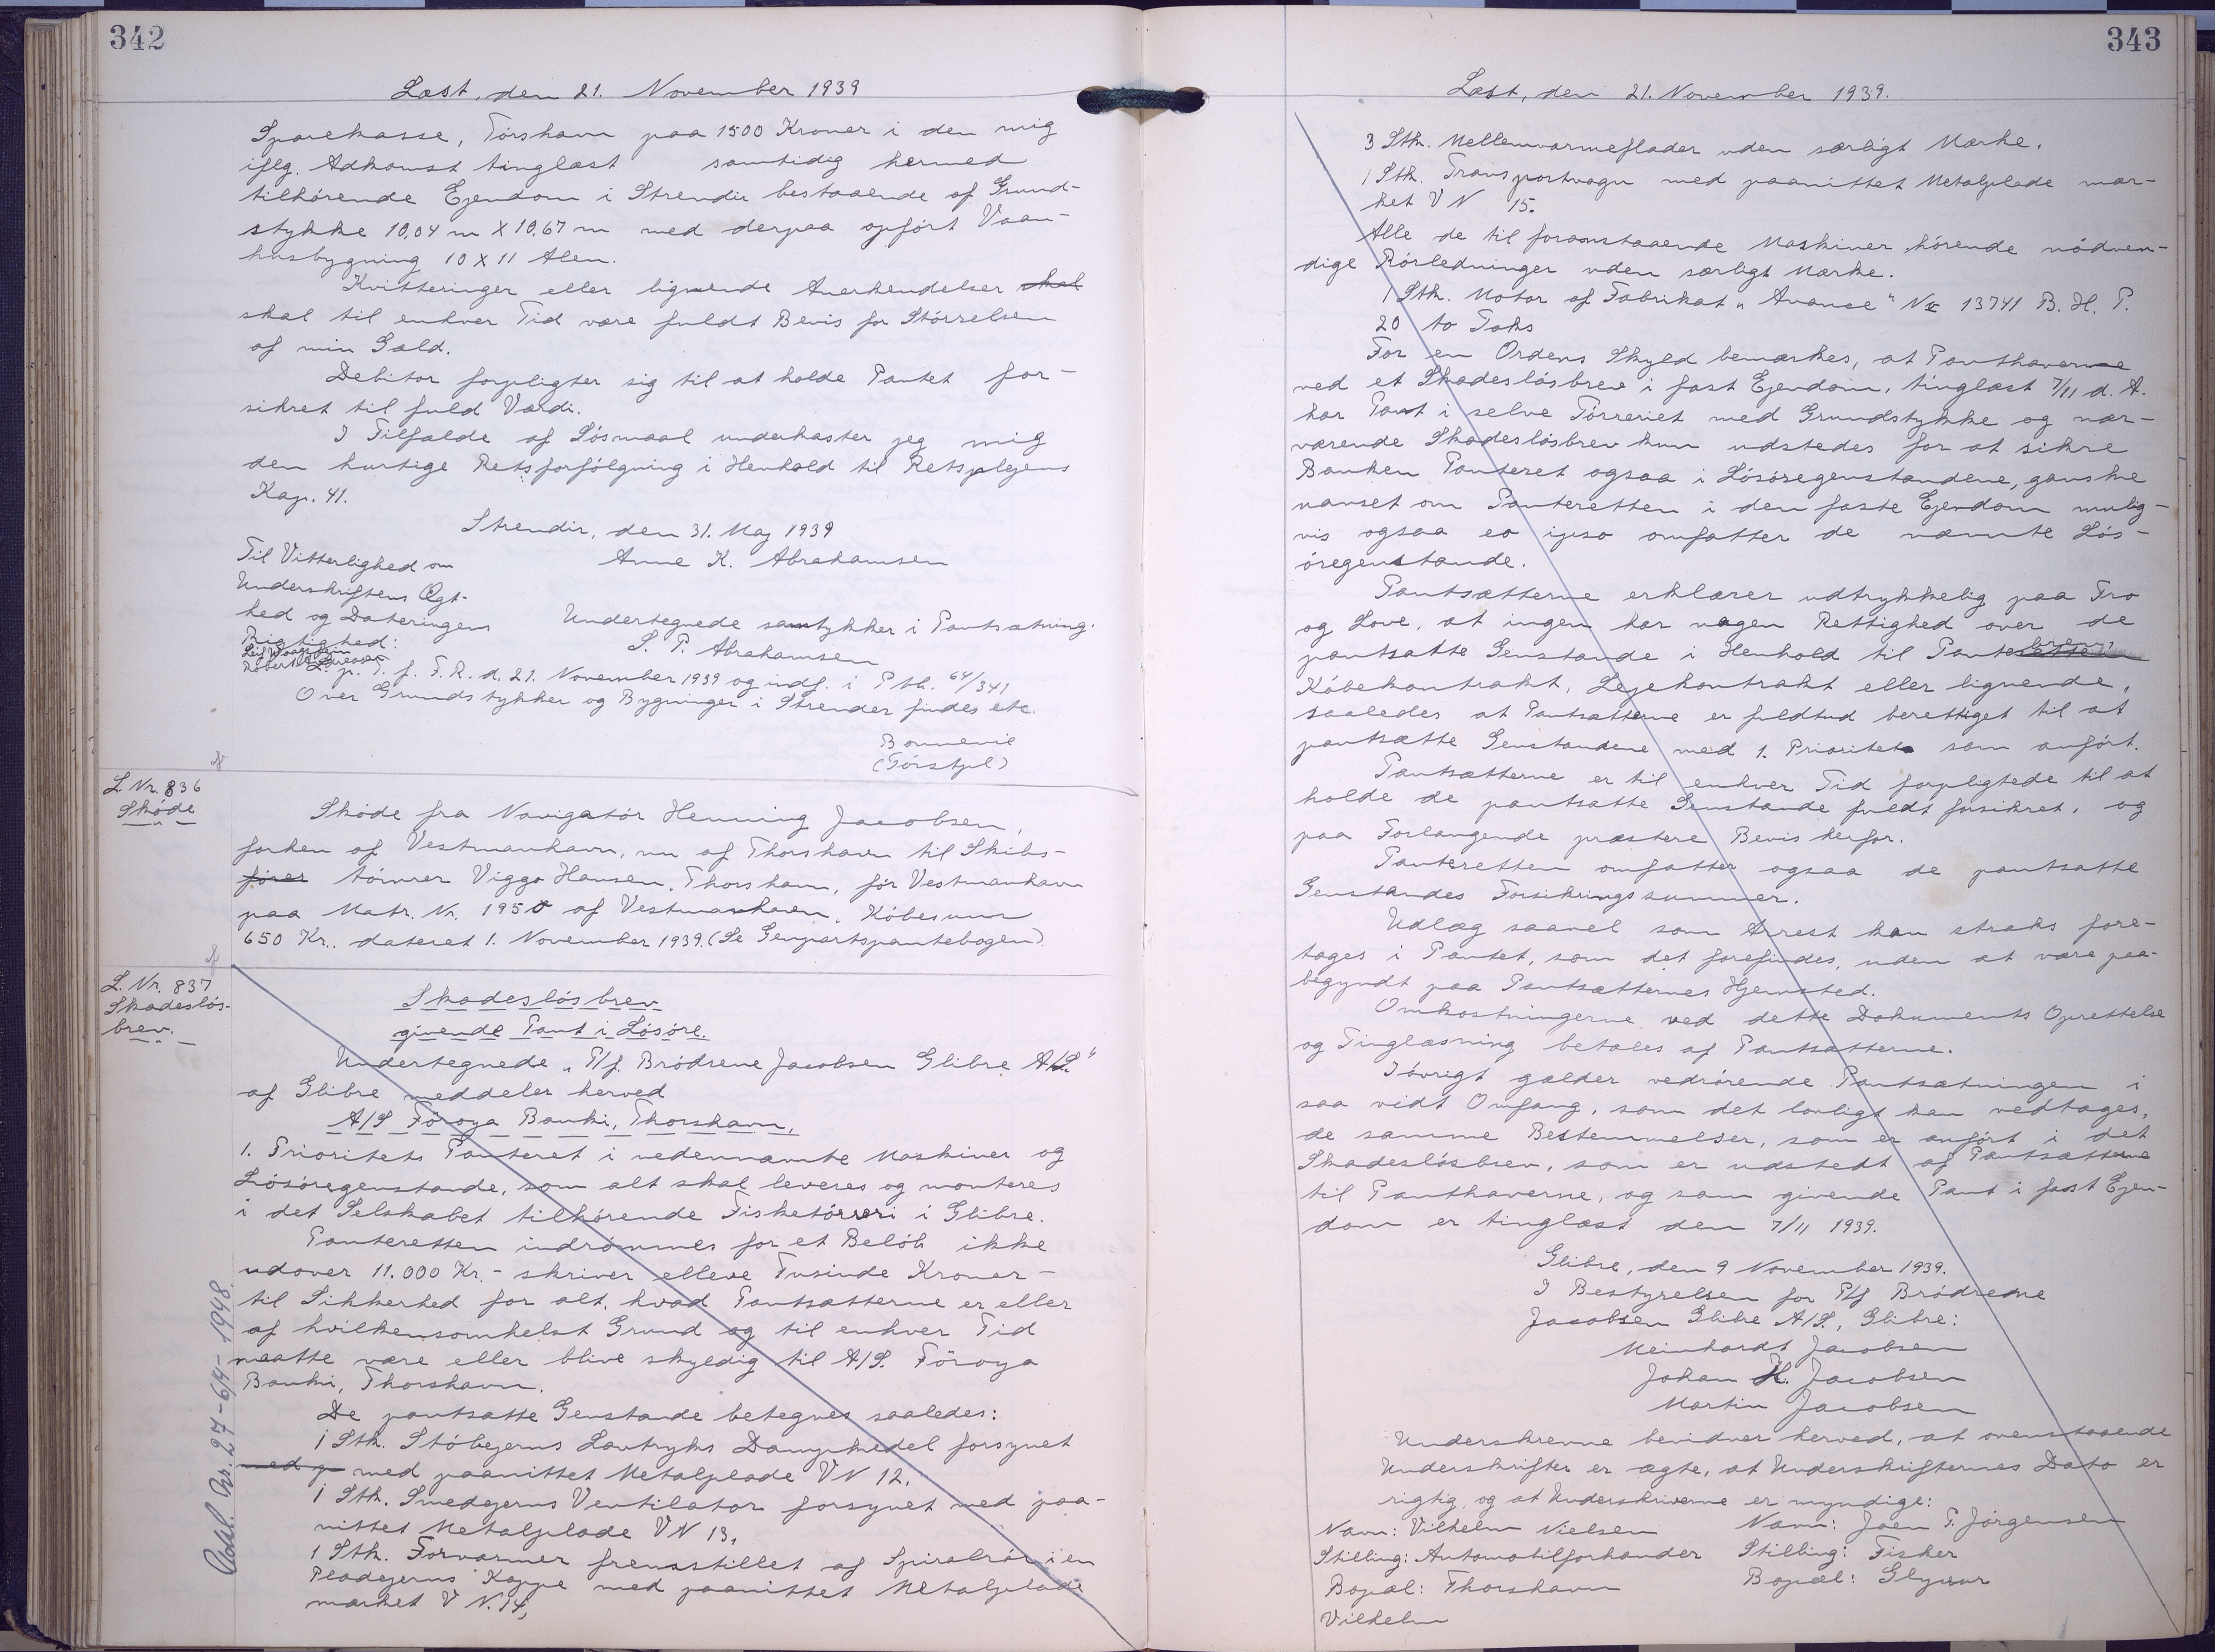 342
Læst, den 21. November 1939
Sparekasse, Tórshavn paa 1500 Kroner i den mig
iflg. Adkomst tinglæst samtidig hermed
tilhörende Ejendom i Strendir bestaaende af Grund-
stykke 10,04 m X 10,67 m med derpaa opfört Vaan-
husbygning 10 X 11 Alen.
Kvitteringer eller lignende Anerkendelser skal
skal til enhver Tid være fuldt Bevis for Störrelsen
af min Gæld.
Debitor forpligter sig til at holde Pantet for-
sikret til fuld Værdi.
I Tilfælde af Sösmaal underkaster jeg mig
den hurtige Retsforfölgning i Henhold til Retsplejens
Kap. 41.
Strendir, den 31. Maj 1939
Til Vitterlighed om Anne K. Abrahamsen
Underskriftens Ægt-
hed og Dateringens Undertegnede samtykker i Pantsætning.
Rigtighed: S. P. Abrahamsen
L. p. T. f. F. R. d. 21. November 1939 og indf. i P tb. 64/341
Over Grundstykker og Bygninger i Strender findes etc.
Bonnevie
(Törstpl)
L Nr. 836
Sköde
Sköde fra Navigatör Henning Jacobsen,
forhen af Vestmanhavn, nu af Thorshavn til Skibs-
förer tömrer Viggo Hansen, Thorshavn, för Vestmanhavn
paa Matr. Nr. 1950 af Vestmanhavn. Köbesum
650 Kr., dateret 1. November 1939. (Se Genpartspantebogen).
L. Nr. 837
Skadeslös-
brev.
Skadeslösbrev
givende Pant i Lösöre.
Undertegnede „P/f. Brödrene Jacobsen Glibre A/S."
af Glibre meddeler herved
A/S Föroya Banki, Thorshavn,
1. Prioritets Panteret i nedennævnte Maskiner og
Lösöregenstande, som alt skal leveres og monteres
i det Selskabet tilhörende Fisketörreri i Glibre.
Panteretten indrömmes for et Belöb ikke
udover 11.000 Kr. - skriver elleve Tusinde Kroner -
til Sikkerhed for alt, hvad Pantsætterne er eller
af hvilkensomhelst Grund og til enhver Tid
maatte være eller blive skyldig til A/S. Föroya
Banki, Thorshavn.
De pantsatte Genstande betegnes saaledes:
1 Stk. Stöbejerns Lavtryks Dampkedel forsynet
med p med paanittet Metalplade V N 12.
1 Stk. Smedejerns Ventilator forsynet med paa-
nittet Metalplade V N 13,
1 Stk. Forvarmer fremstillet af Spiralrör i en
Pladejerns Kappe med paanittet Metalplade
mærket V N. 14,
Adl. Nr. 27-6/4-1948.
343
Læst, den 21. November 1939.
3 Stk. Mellemvarmeflader uden særligt Mærke.
1 Stk. Transportvogn med paanittet Metalplade mær-
ket V N 15.
Alle de til foranstaaende Maskiner hörende nödven-
dige Rörledninger uden særligt Mærke.
1 Stk. Motor af Fabrikat „Avance" No 13741 B. H. P.
20 to Takts
For en Ordens Skyld bemærkes, at Panthaverne
ved et Skadeslösbrev i fast Ejendom, tinglæst 7/11 d. A.
har Pant i selve Törreriet med Grundstykke og nær-
værende Skadeslösbrev kun udstedes for at sikre
Banken Panteret ogsaa i Lösöregenstandene, ganske
uanset om Panteretten i den faste Ejendom mulig-
vis ogsaa eo ipso omfatter de nævnte Lös-
öregenstande.
Pantsætterne erklærer udtrykkelig paa Tro
og Love, at ingen har nogen Rettighed over de
pantsatte Genstande i Henhold til Pantebrev,
Köbekontrakt, Lejekontrakt eller lignende,
saaledes at Pantsætterne er fuldtud berettiget til at
pantsætte Genstandene med 1. Prioritet som anfört.
Pantsætterne er til enhver Tid forpligtede til at
holde de pantsatte Genstande fuldt forsikret, og
paa Forlangende præstere Bevis herfor.
Panteretten omfatter ogsaa de pantsatte
Genstandes Forsikringssummer.
Udlæg saavel som Arrest kan straks fore-
tages i Pantet, som det forefindes, uden at være paa-
begyndt paa Pantsætternes Hjemsted.
Omkostningerne ved dette Dokuments Oprettelse
og Tinglæsning betales af Pantsætterne.
Iövrigt gælder vedrörende Pantsætningen i
saa vidt Omfang, som det lovligt kan vedtages,
de samme Bestemmelser, som er anfört i det
Skadeslösbrev, som er udstedt af Pantsætterne
til Panthaverne, og som givende Pant i fast Ejen-
dom er tinglæst den 7/11 1939.
Glibre, den 9 November 1939.
I Bestyrelsen for P/f Brödrene
Jacobsen Glibre A/S., Glibre:
Meinhardt Jacobsen
Johan H. Jacobsen
Martin Jacobsen
Underskrevne bevidner herved, at ovenstaaende
Underskrifter er ægte, at Underskrifternes Dato er
rigtig, og at Underskriverne er myndige:
Navn: Vilhelm Nielsen Navn: Joen F. Jörgensen
Stilling: Automobilforhandler Stilling: Fisker
Bopæl: Thorshavn Bopæl: Glyvur
Vilhelm